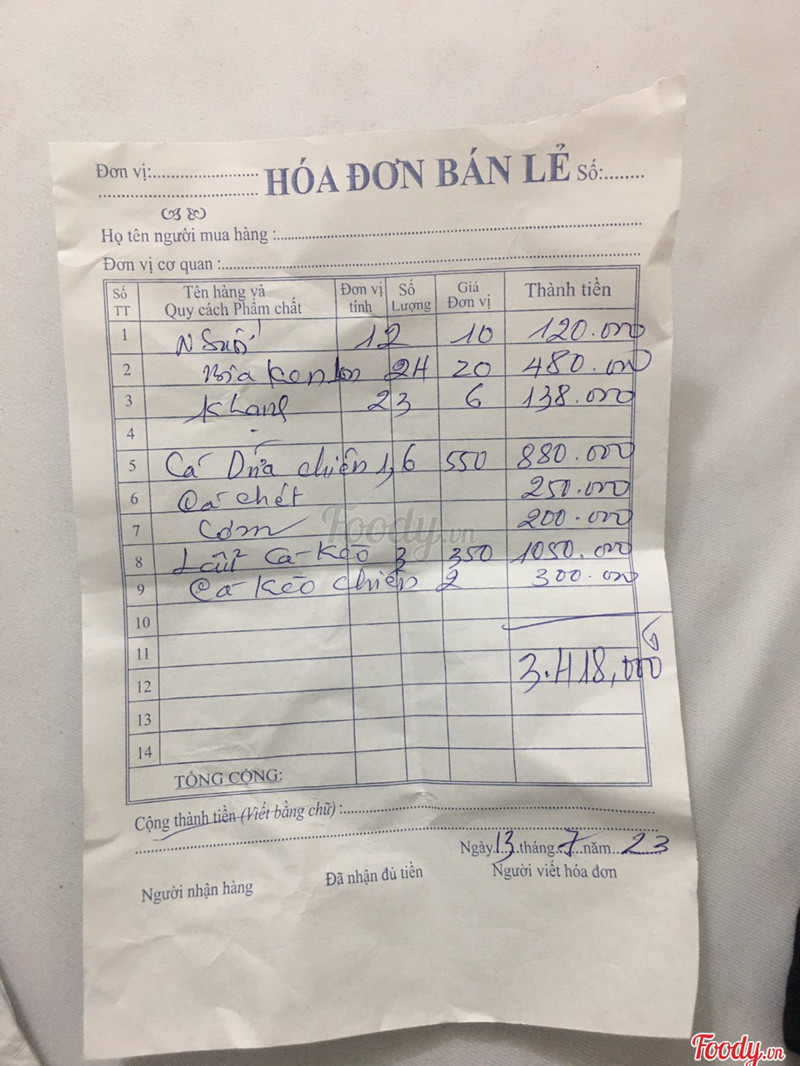 Đơn vị:........................ HÓA ĐƠN BÁN LẺ Số:........
Họ tên người mua hàng :........................
Đơn vị cơ quan :........................
Số TT Tên hàng và Quy cách Phẩm chất Đơn vị tính Số Lượng Giá Đơn vị Thành tiền
1 N Suối 12 10 120.000
2 Bia Ken lon 24 20 480.000
3 Khăn 23 6 138.000
4
5 Cá Dứa chiên 1,6 550 880.000
6 250.000
7 Cơm 200.000
8 Lẩu Cá Kèo 3 350 1050.000
9 Cá Kèo chiên 2 300.000
10
11
12 3.418,000
13
14
TỔNG CỘNG:
Cộng thành tiền (Viết bằng chữ) :........................
Ngày 13 tháng 7 năm 23
Người nhận hàng Đã nhận đủ tiền Người viết hóa đơn
Foody.vn
Foody.vn